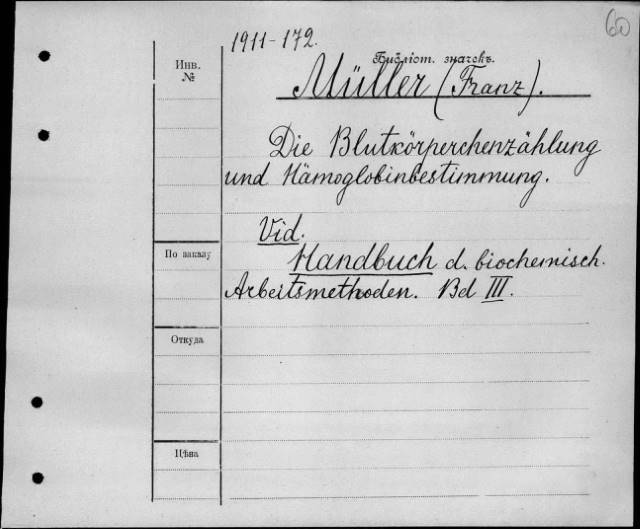 60
1911-172.
Инв.
№
Библіот. значекъ.
Müller (Franz).
Die Blutkörperchenzählung
und Hämoglobinbestimmung.
Vid.
По заказу
Handbuch d. biochemisch.
Arbeitsmethoden. Bd III.
Откуда
Цѣна